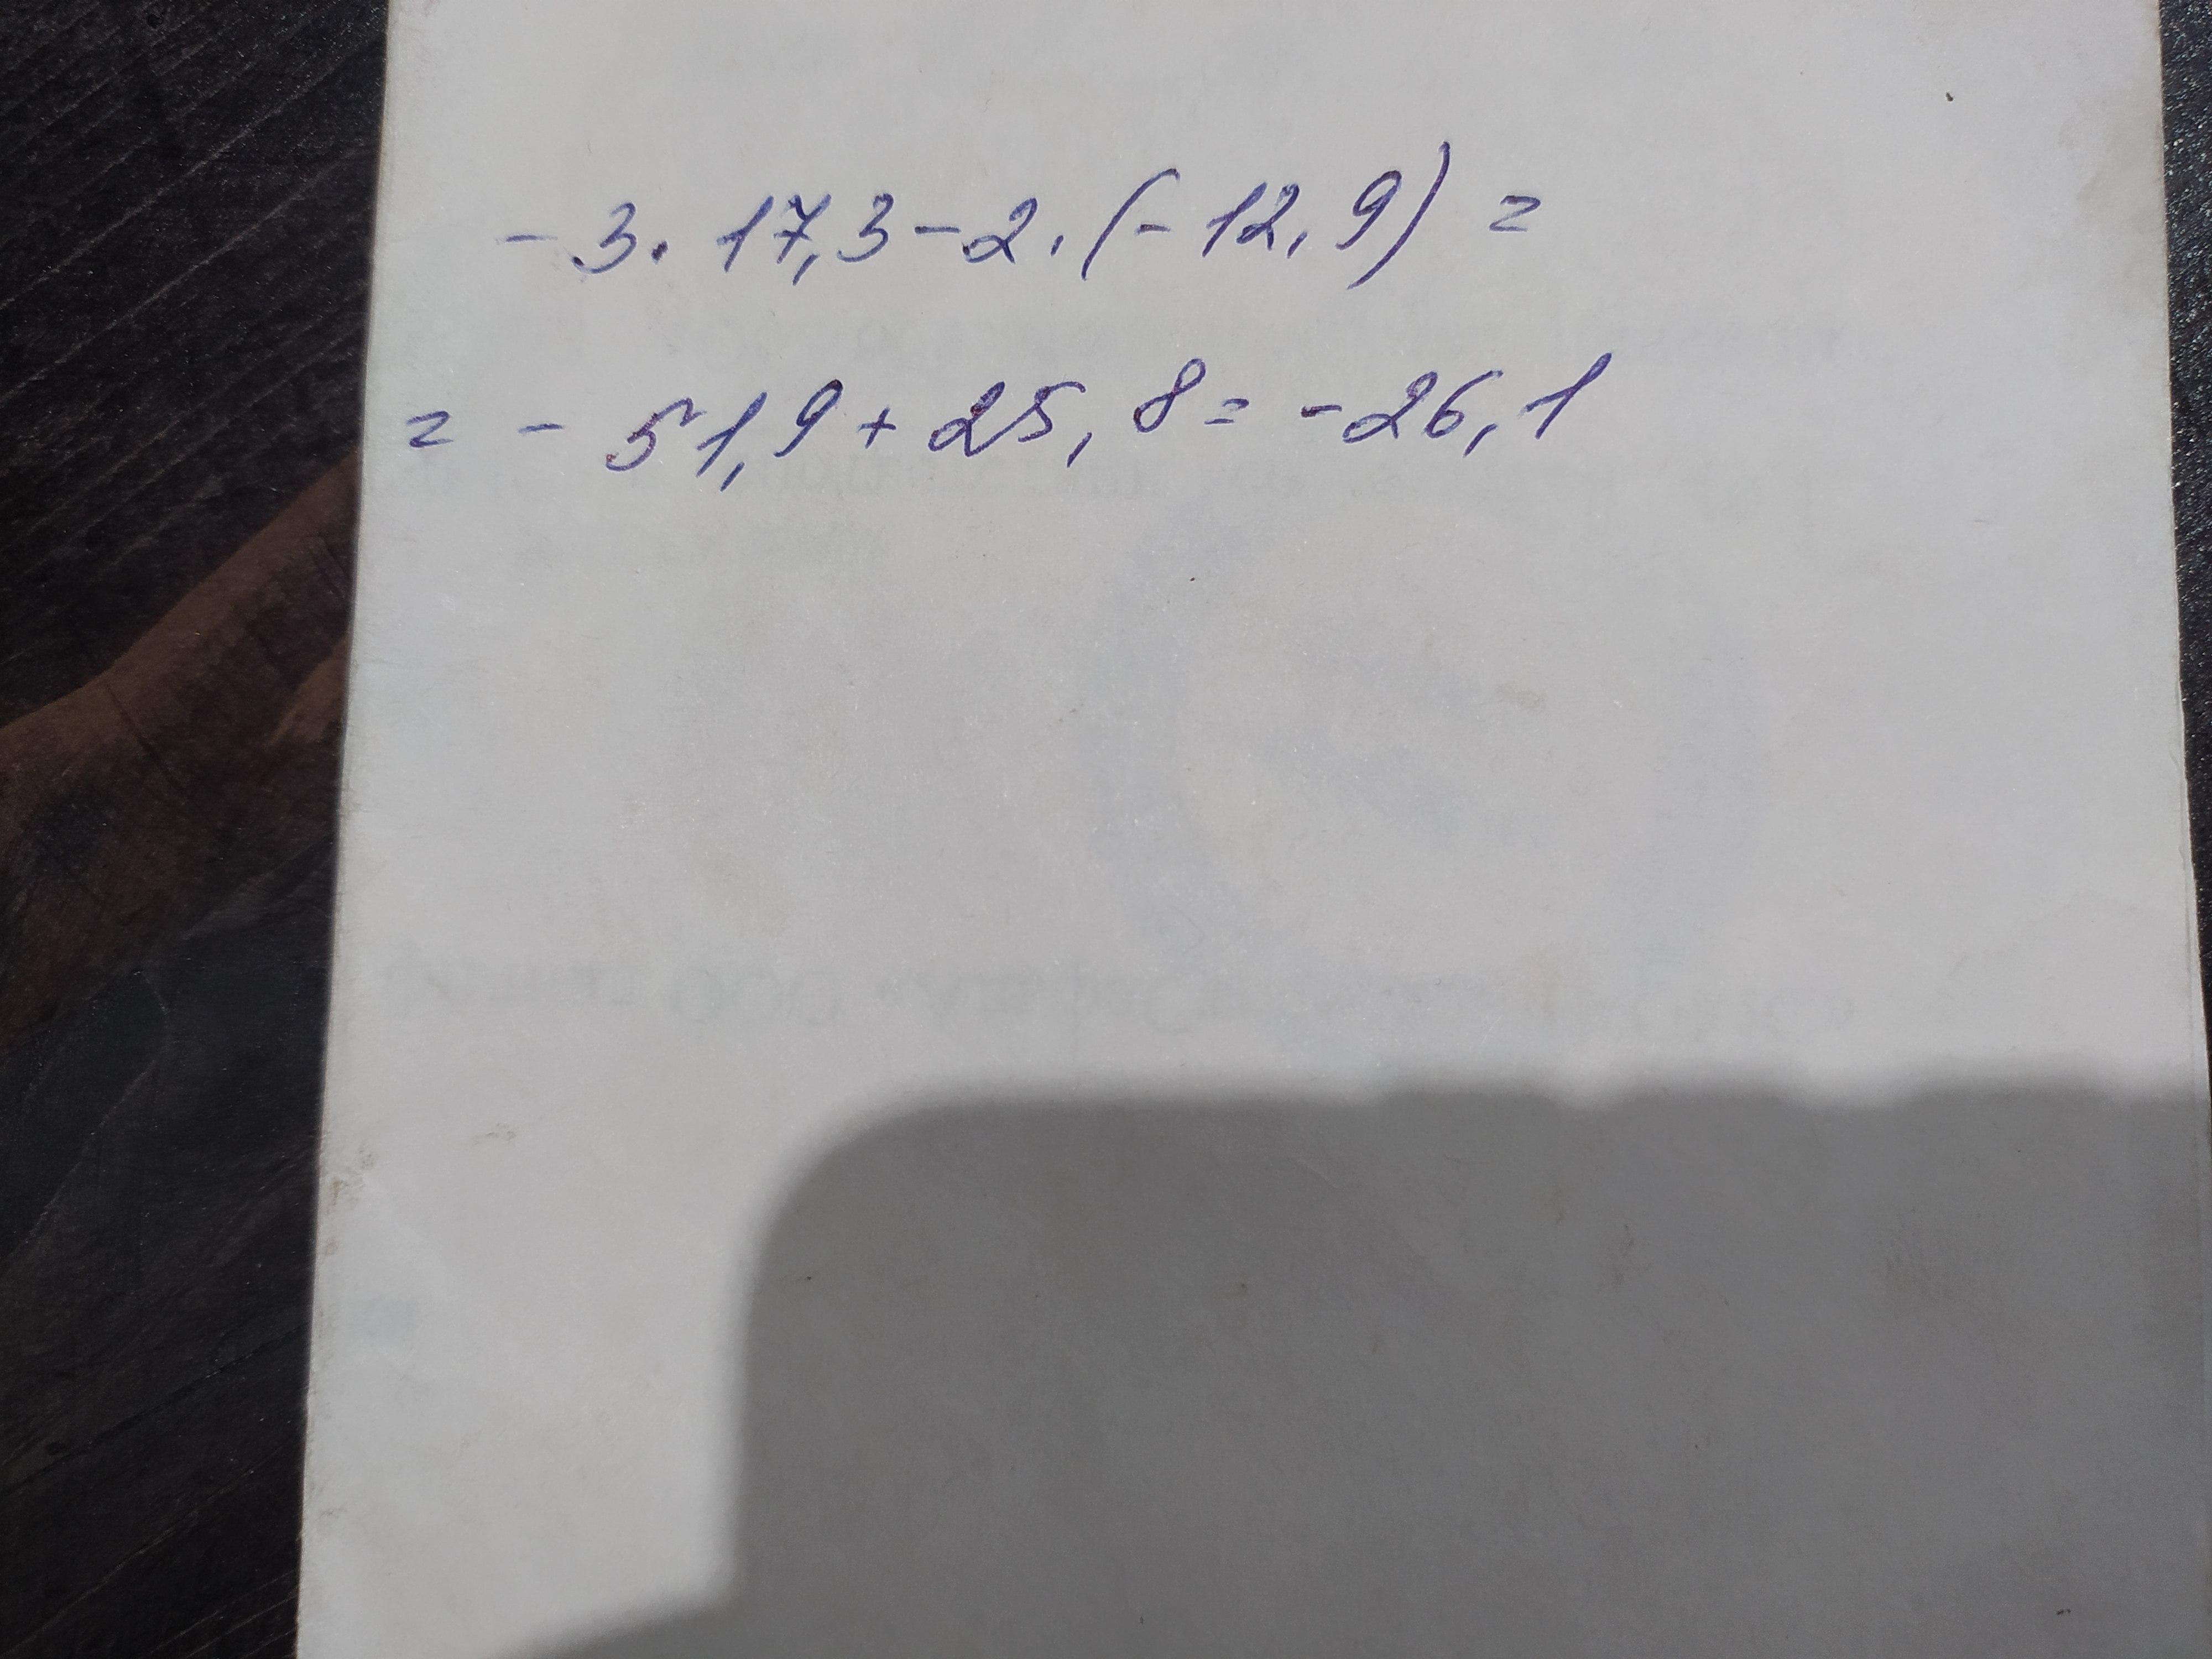 - 3. 17,3 - 2. (- 12,9) =
= - 51,9 + 25,8 = - 26,1